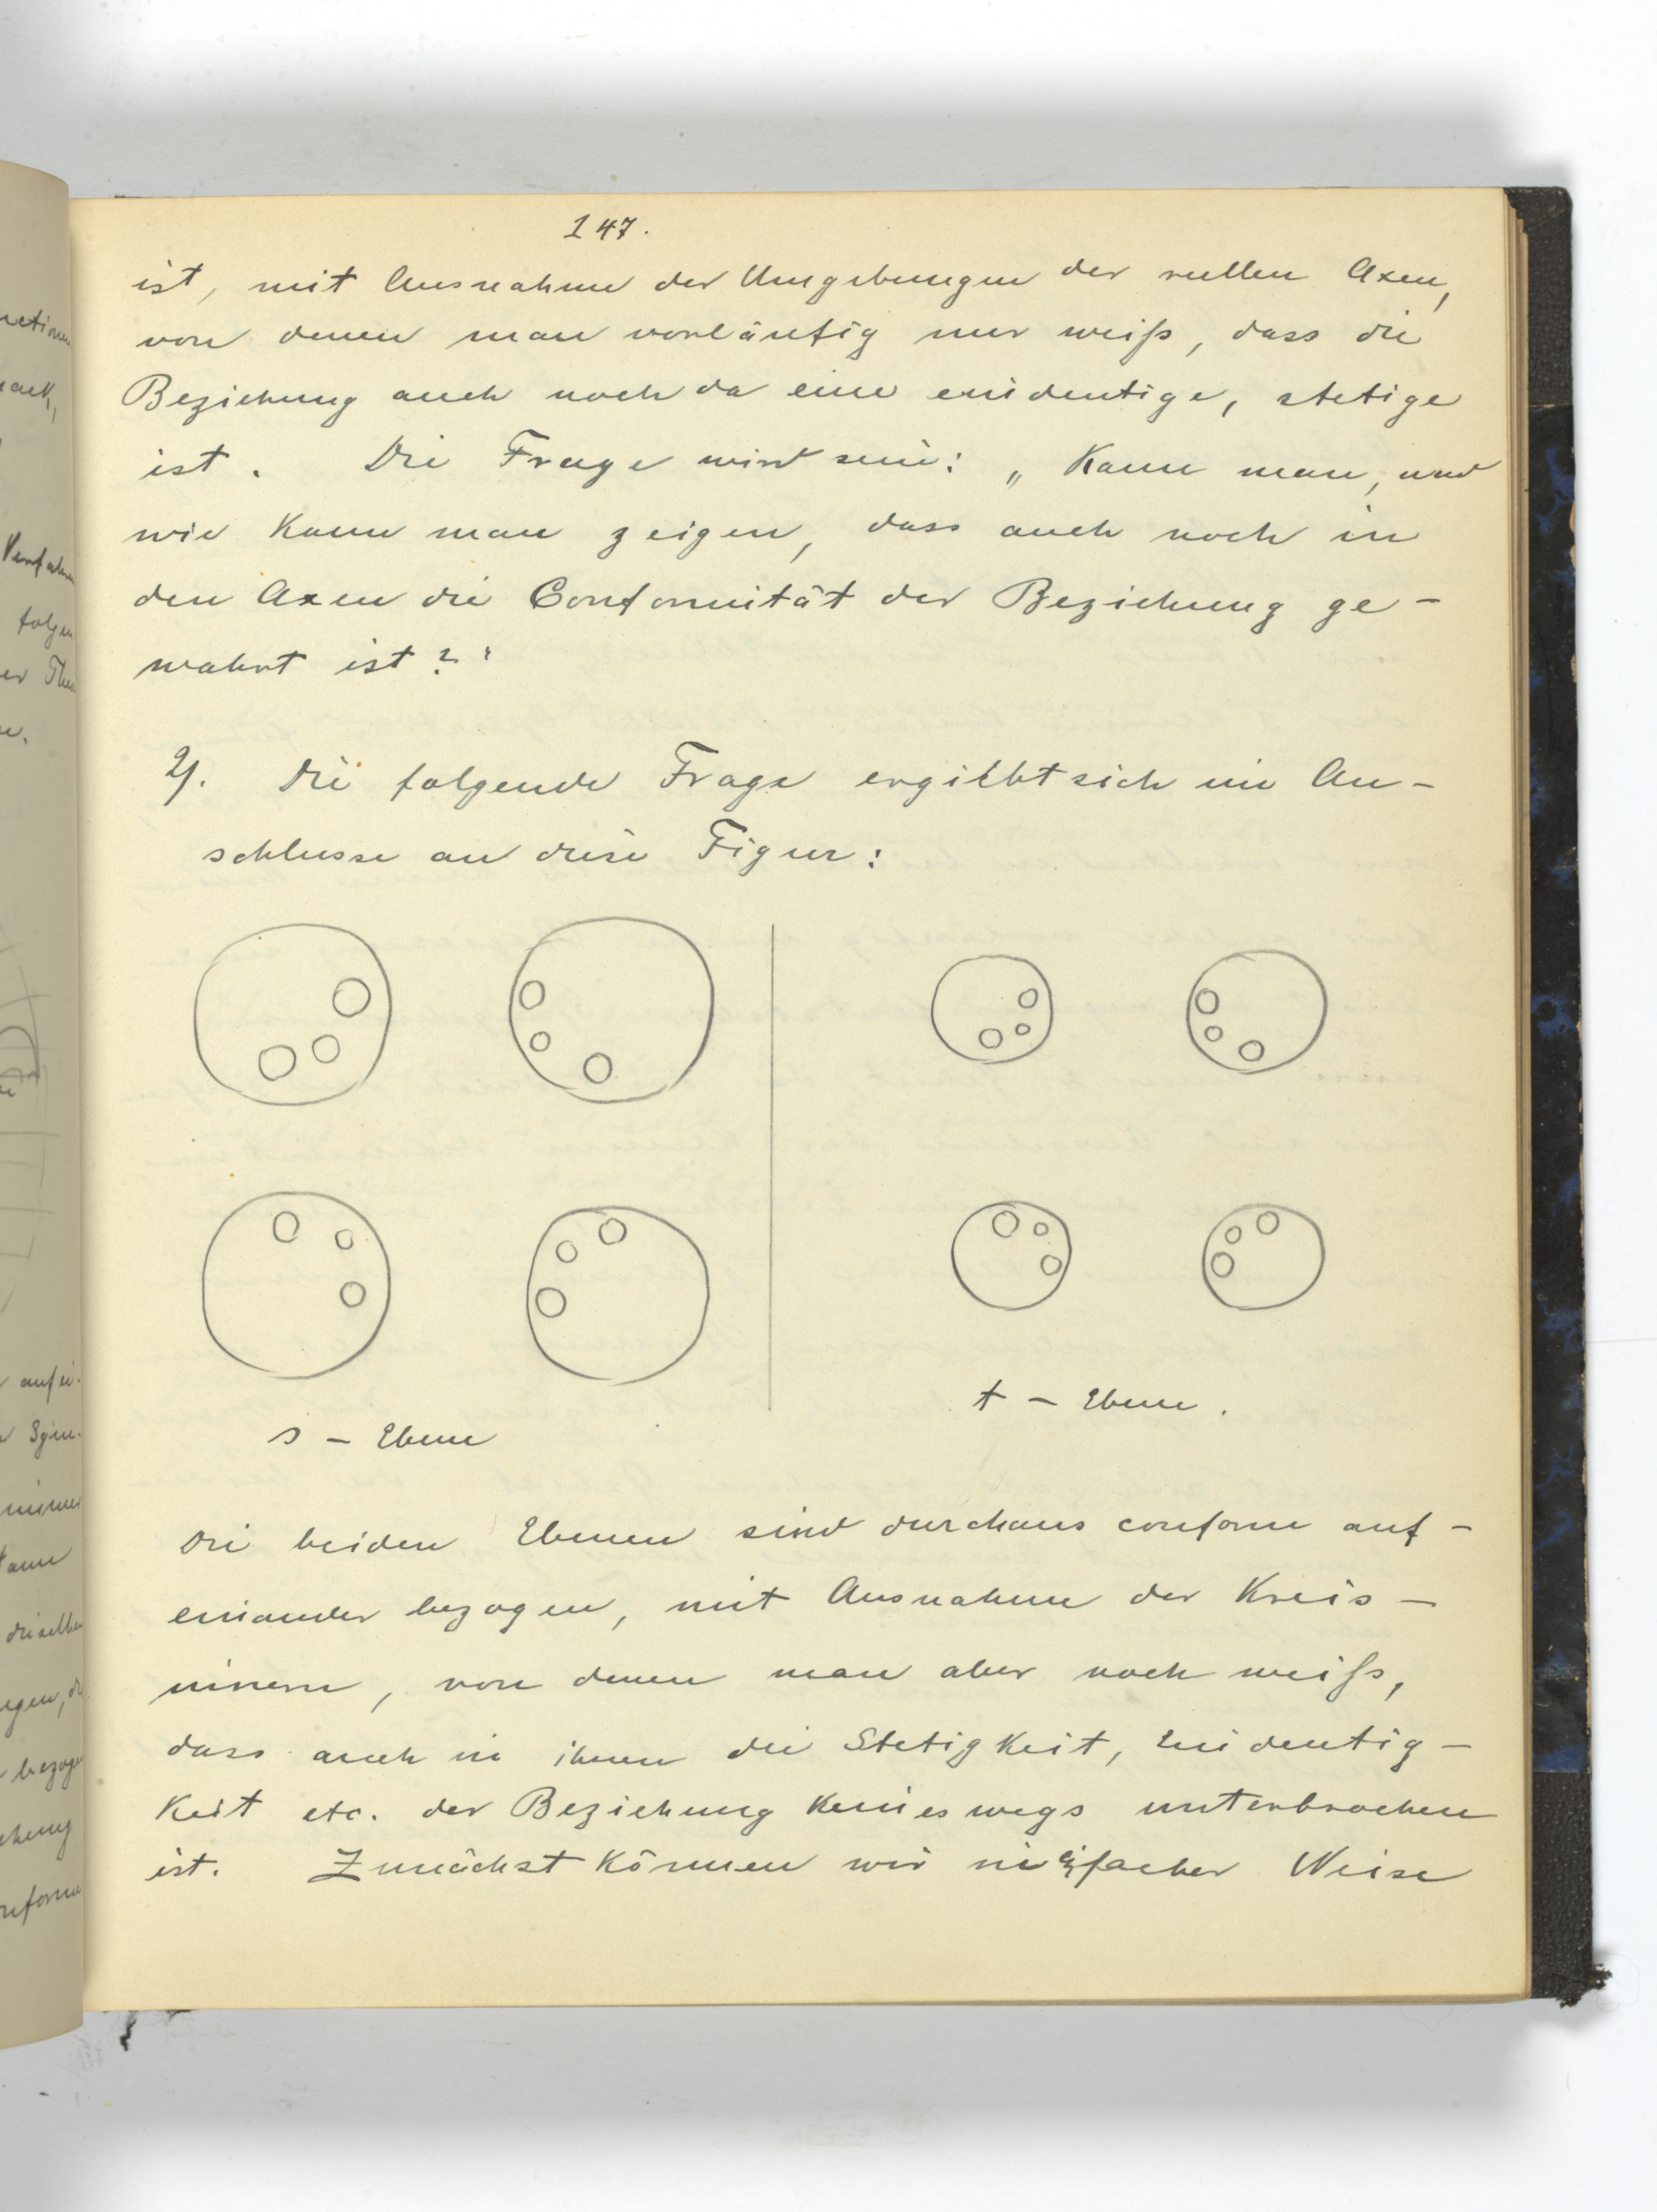 147.
ist, mit Ausnahme der Umgebungen der reellen Axen,
von denen man vorläufig nur weiß, dass die
Beziehung auch noch da eine eindeutige, stetige
ist. Die Frage wird sein: „Kann man, und
wie kann man zeigen, dass auch noch in
den Axen die Conformität der Beziehung ge-
wahrt ist?"
2). Die folgende Frage ergibt sich im An-
schlusse an diese Figur:
s - Ebene
t - Ebene.
Die beiden Ebenen sind durchaus conform auf-
einander bezogen, mit Ausnahme der Kreis-
innern, von denen man aber noch weiß,
dass auch in ihnen die Stetigkeit, Eindeutig-
keit etc. der Beziehung keineswegs unterbrochen
ist. Zunächst können wir in einfacher Weise
Verfahren
folgen
auf ei-
dieselben
bezogen